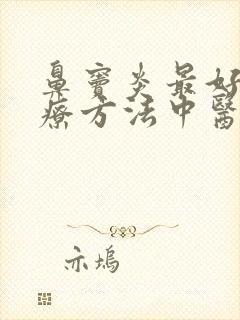 鼻竇炎最好
療方法中醫
亦塢